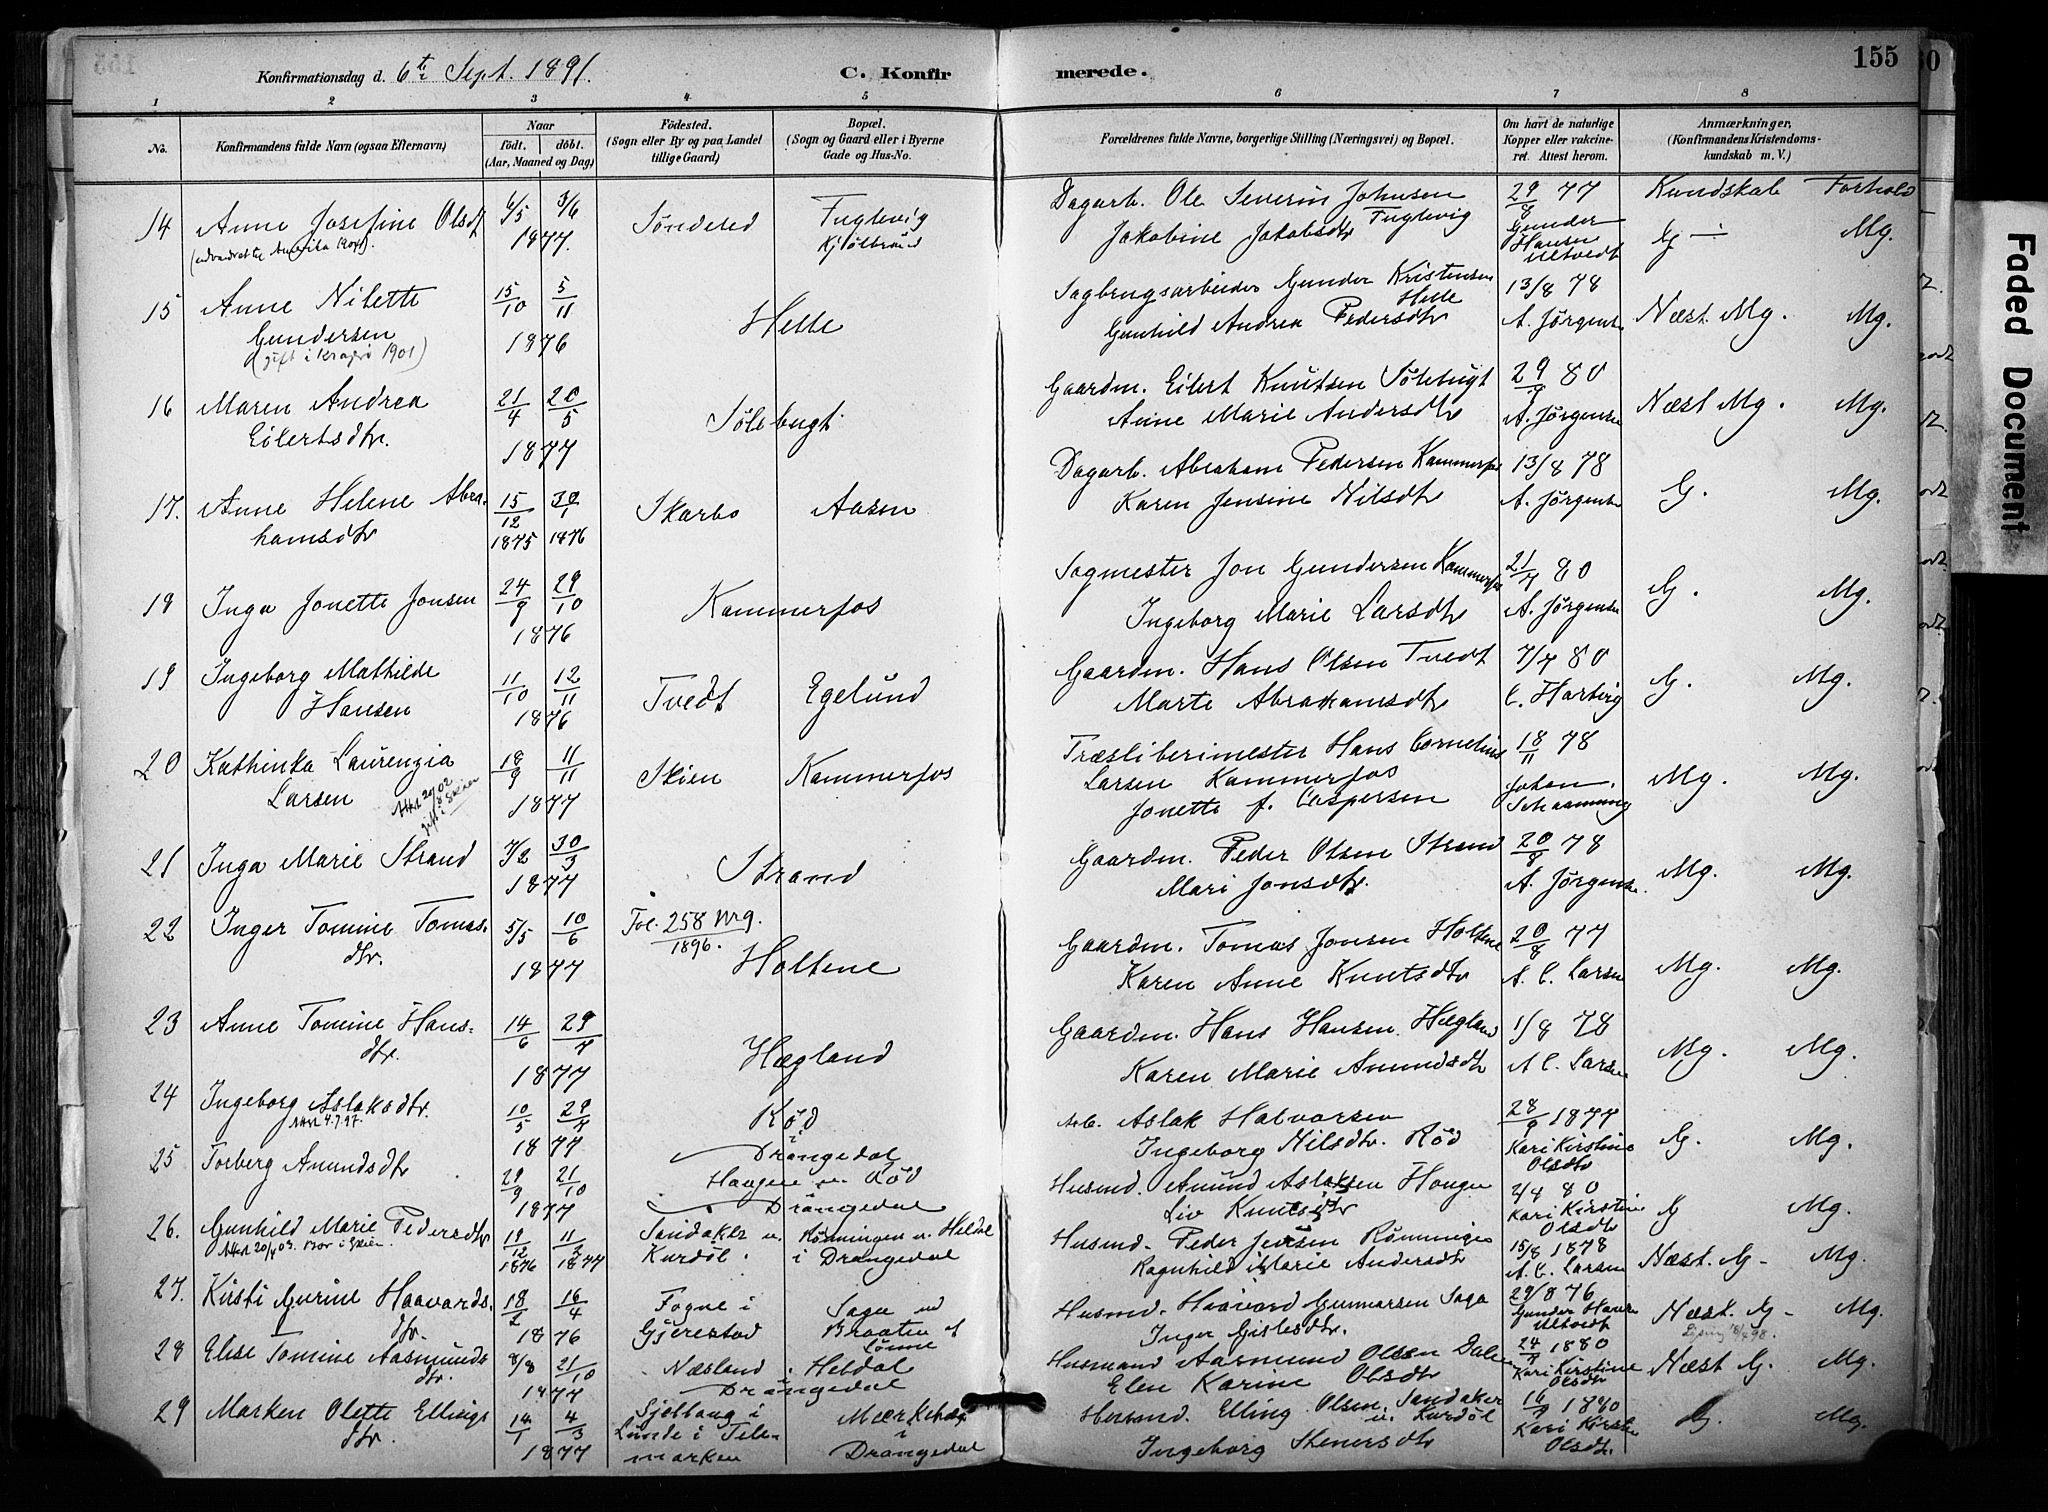 155
Konfirmationsdag d. 6te Sept. 1891.
C. Konfir merede.
1 2 3 4 5 6 7 8
No.
Konfirmandens fulde Navn (ogsaa Efternavn)
Naar
födt. döbt.
(Aar, Maaned og Dag)
Födested.
(Sogn eller By og paa Landet tillige Gaard)
Bopæl.
(Sogn og Gaard eller i Byerne Gade og Hus-No.
Forældrenes fulde Navne, borgerlige Stilling (Næringsvei) og Bopæl.
Om havt de naturlige Kopper eller vakcineret. Attest herom.
Anmærkninger,
(Konfirmandens Kristendomskundskab m. V.)
Kundskab Forhold
14 Anne Josefine Olsdtr 6/5 3/6 1877. Søndeled Fuglevig Dagarb. Ole Severin Johnsen Fuglevig 29/8 77
Jakobine Jakobsdtr Gunder Hansen Ultvedt G ÷ Mg.
15 Anne Nilette Gundersen 15/10 5/11 1876 Helle Sagbrugsarbeider Gunder Kristensen Helle 13/8 78
(gift i Kragerø 1901) Gunhild Andrea Pedersdtr A. Jørgens. Næst Mg. Mg.
16 Maren Andrea Eilertsdtr. 21/4 20/5 1877 Sölebugt Gaardm. Eilert Knutsen Sölebugt 29/9 80
Anne Marie Andersdtr A. Jørgense Næst Mg. Mg.
17. Anne Helene Abrahamsdtr 15/12 1875 30/1 1876 Skarbo Aasen Dagarb. Abraham Pedersen Kammerfos 13/8 78
Karen Jensine Nilsdtr A. Jørgens. G. Mg.
18 Inga Jonette Jonsen 24/9 29/10 1876 Kammerfos Sagmester Jon Gundersen Kammerfos 21/7 80
Ingeborg Marie Larsdtr A. Jørgense G. Mg.
19 Ingeborg Mathilde Hansen 11/10 12/11 1876 Tvedt Egelund Gaardm. Hans Olsen Tvedt 7/7 80
Marte Abrahamsdtr C. Hartvig G. Mg.
20 Kathinka Laurenzia Larsen 18/9 11/11 1877 Skien Kammerfos Træsliberimester Hans Cornelius 18/11 78
gift i Skien Larsen Kammerfos
Jonette f. Caspersen Johan Mg. Mg.
21 Inga Marie Strand 7/2 30/3 1877 Strand Gaardm. Peder Olsen Strand 20/8 78
Mari Jonsdtr. A. Jørgens. Mg. Mg.
22 Inger Tomine Tomasdtr. 5/5 10/6 1877 Fol. 258 1896. Holtene Gaardm. Tomas Jonsen Holtene 20/8 77
Karen Anne Knutsdtr A. C. Larsen Mg. Mg.
23 Anne Tomine Hansdtr. 14/6 29/7 1877 Hægland Gaardm. Hans Hansen Hægland 1/8 78
Karen Marie Amundsdtr A C. Larsen Mg. Mg.
24 Ingeborg Aslaksdtr. 10/5 29/7 1877 Röd i Drangedal Arb. Aslak Halvorsen 28/9 1877
Attest 4.7.97. Ingeborg Nilsdtr. Röd Kari Kirstine Olsdtr G. Mg.
25 Torberg Anundsdtr 29/9 21/10 1877 Haugen u. Röd Drangedal Husmd. Amund Aslaksen Haugen 80
Liv Knutsdtr Kari Kirstine Olsdtr G Mg.
26. Gunhild Marie Pedersdtr 19/12 1876 11/3 1877 Sandaker u. Kurdöl. Rönningen u. Heldal i Drangedal Husmd. Peder Jensen Rönningen 15/8 1878
Attest 20/4 03. Bor i Skien. Ragnhild Marie Andersdtr A. C. Larsen Næst. G. Mg.
27. Kirsti Gurine Haavardsdtr. 18/2 16/4 1876 Fogne i Gjerestad Saga ud Braaten Husmd. Haavard Gunnarsen Saga 29/8 76
Inger Gislesdtr. Gunder Hansen Ultvedt Næst. G. Mg.
28 Elise Tomine Aasmundsdtr. 8/8 21/10 1877 Næsland i Heldal Drangedal Husmand Aasmund Olsen Dalen 24/7 1880
Elen Karine Olsdtr Kari Kirstine Olsdtr Næst G. Mg.
29 Marken Olette Ellingsdtr. 14/1 4/3 1877 Lunde i Telemarken i Drangedal Husmd. Elling Olsen Sandaker u. Kurdöl 16/9 1880
Ingeborg Stenersdtr Kari Kirstine Olsdtr. G. Mg.
Faded Document